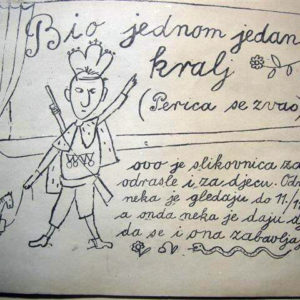 Bio jednom jedan
kralj
(Perica se zvao
ovo je slikovnica za
odrasle i za djecu.
neka je gledaju do
a onda neka je daju
da se i ona zabavljaj